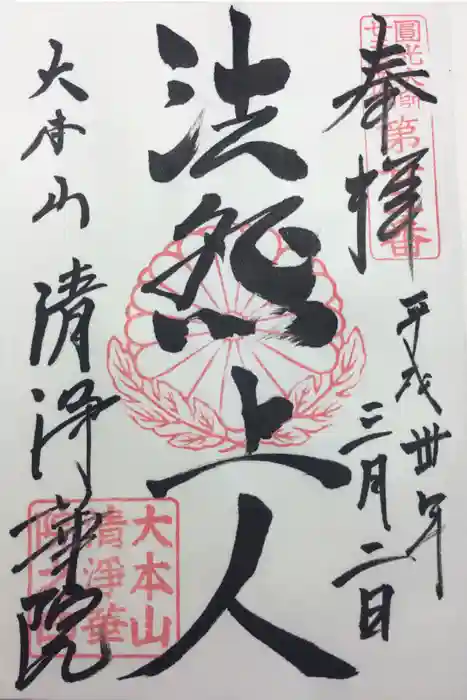 奉拝
平成卅年
三月二日
法然上人
大本山 清浄華院
圓光大師
廿五
第
番
大本山
清浄華
院